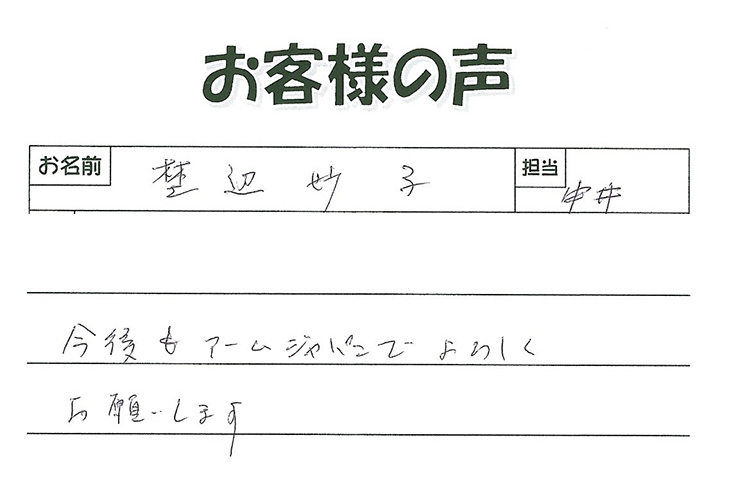 お客様の声
お名前 埜辺 妙子 担当 中井
今後もアームジャパンでよろしく
お願いします